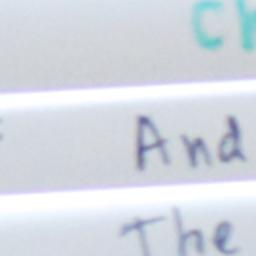 Ch
And
The